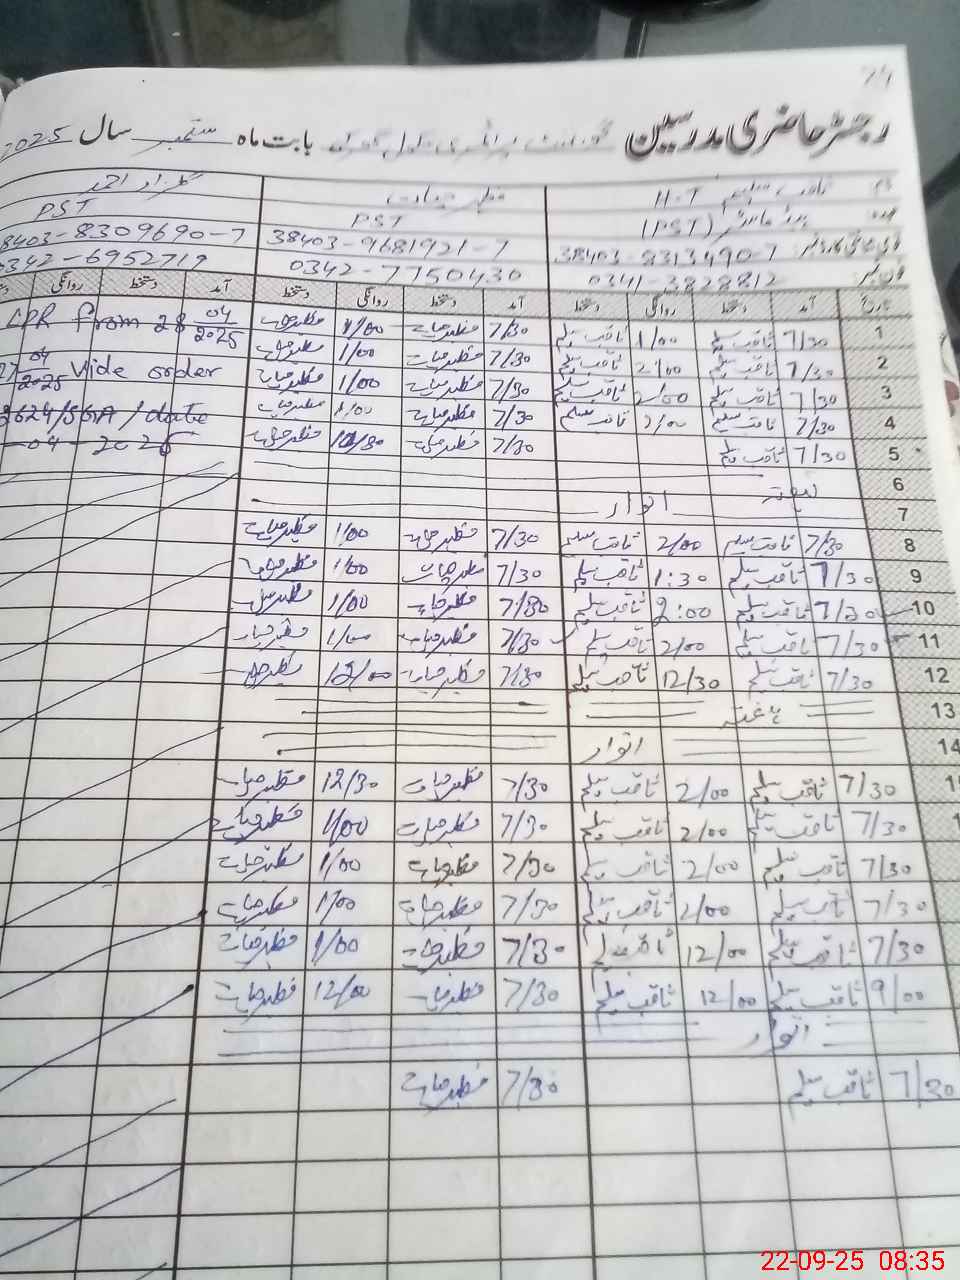 24
رجسٹر حاضری مدرسین گورنمنٹ پرائمری سکول بابت ماہ ستمبر سال 2025
نام ثاقب سلیم H.T مظہر حیات گلزار احمد
عہدہ ہیڈ ماسٹر (PST) PST PST
قومی شناختی کارڈ نمبر 38403-8313490-7 38403-9681921-7 38403-8309690-7
فون نمبر 0341-3828812 0342-7750430 0342-6952719
تاریخ آمد دستخط روانگی دستخط آمد دستخط روانگی دستخط آمد دستخط روانگی
1 7/30 ثاقب سلیم 1/00 ثاقب سلیم 7/30 مظہر حیات 1/00 مظہر حیات LPR from 28 04/2025
2 7/30 ثاقب سلیم 2:00 ثاقب سلیم 7/30 مظہر حیات 1/00 مظہر حیات
3 7/30 ثاقب سلیم 2/00 ثاقب سلیم 7/30 مظہر حیات 1/00 مظہر حیات 04 2025 vide order
4 7/30 ثاقب سلیم 2/00 ثاقب سلیم 7/30 مظہر حیات 1/00 مظہر حیات date
5 7/30 ثاقب سلیم 7/30 مظہر حیات 12/30 مظہر حیات 04 - 2025
6 ہفتہ
7 اتوار
8 7/30 ثاقب سلیم 2/00 ثاقب سلیم 7/30 مظہر حیات 1/00 مظہر حیات
9 7/30 ثاقب سلیم 1:30 ثاقب سلیم 7/30 مظہر حیات 1/00 مظہر حیات
10 7/30 ثاقب سلیم 2:00 ثاقب سلیم 7/30 مظہر حیات 1/00 مظہر حیات
11 7/30 ثاقب سلیم 2/00 ثاقب سلیم 7/30 مظہر حیات 1/00 مظہر حیات
12 7/30 ثاقب سلیم 12/30 ثاقب سلیم 7/30 مظہر حیات 12/00 مظہر حیات
13 ہافتہ
14 اتوار
7/30 ثاقب سلیم 2/00 ثاقب سلیم 7/30 مظہر حیات 12/30 مظہر حیات
7/30 ثاقب سلیم 2/00 ثاقب سلیم 7/30 مظہر حیات 1/00 مظہر حیات
7/30 ثاقب سلیم 2/00 ثاقب سلیم 7/30 مظہر حیات 1/00 مظہر حیات
7/30 ثاقب سلیم 2/00 ثاقب سلیم 7/30 مظہر حیات 1/00 مظہر حیات
7/30 ثاقب سلیم 12/00 ثاقب سلیم 7/30 مظہر حیات 1/00 مظہر حیات
9/00 ثاقب سلیم 12/00 ثاقب سلیم 7/30 مظہر حیات 12/00 مظہر حیات
اتوار
7/30 ثاقب سلیم 7/30 مظہر حیات
22-09-25 08:35